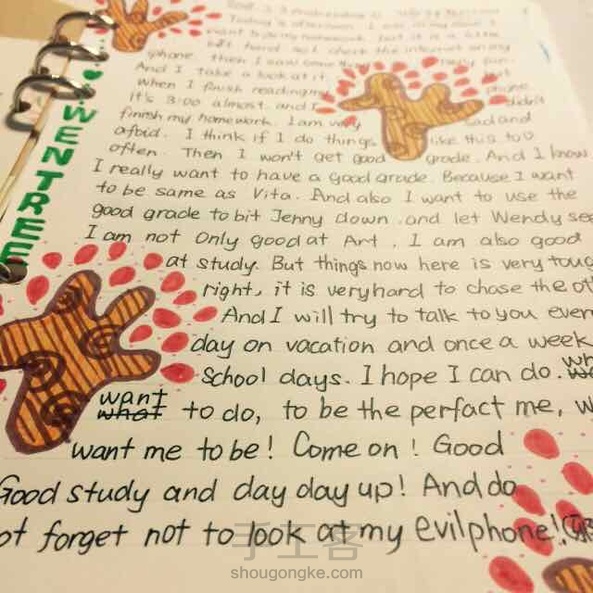 WENTREE
phone. then I saw some
And I take a look at it
when I finish reading my phone.
It's 3:00 almost. and I didn't
finish my homework. I am very sad and
afoid. I think if I do things like this too
often. Then I won't get good grade. And I know
I really want to have a good grade. Because I want
to be same as Vita. And also I want to use the
good grade to bit Jenny down. and let Wendy see
I am not only good at Art. I am also good
at study. But things now here is very toug
right, it is very hard to chase the ot
And I will try to talk to you ever
day on vacation and once a week
school days. I hope I can do.
want what to do, to be the perfact me, w
want me to be! Come on! Good
Good study and day day up! And do
ot forget not to look at my evil phone!
手工客
shougongke.com